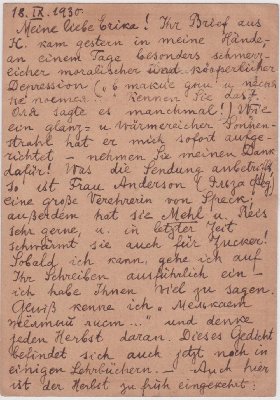 18. IX. 1930.
Meine liebe Erika! Ihr Brief aus
K. kam gestern in meine Hände –
an einem Tage besonders schmerz-
licher moralischer und körperlicher
Depression
Kennen Sie das?
sagte es manchmal! Wie
ein glanz- u wärmereicher Sonnen-
strahl hat er mich sofort aufge-
richtet – nehmen Sie meinen Dank
dafür! Was die Sendung anbetrifft,
so ist Frau Anderson
eine große Verehrerin von Speck,
außerdem hat sie Mehl u. Reis
sehr gerne, u. in letzter Zeit
schwärmt sie auch für Zucker!
Sobald ich kann, gehe ich auf
Ihr Schreiben ausführlich ein –
ich habe Ihnen viel zu sagen.
Gewiß kenne ich „Мелькает
жёлтый лист..." und denke
jeden Herbst daran. Dieses Gedicht
befindet sich auch jetzt noch in
einigen Lehrbüchern. – Auch hier
ist der Herbst zu früh eingekehrt: